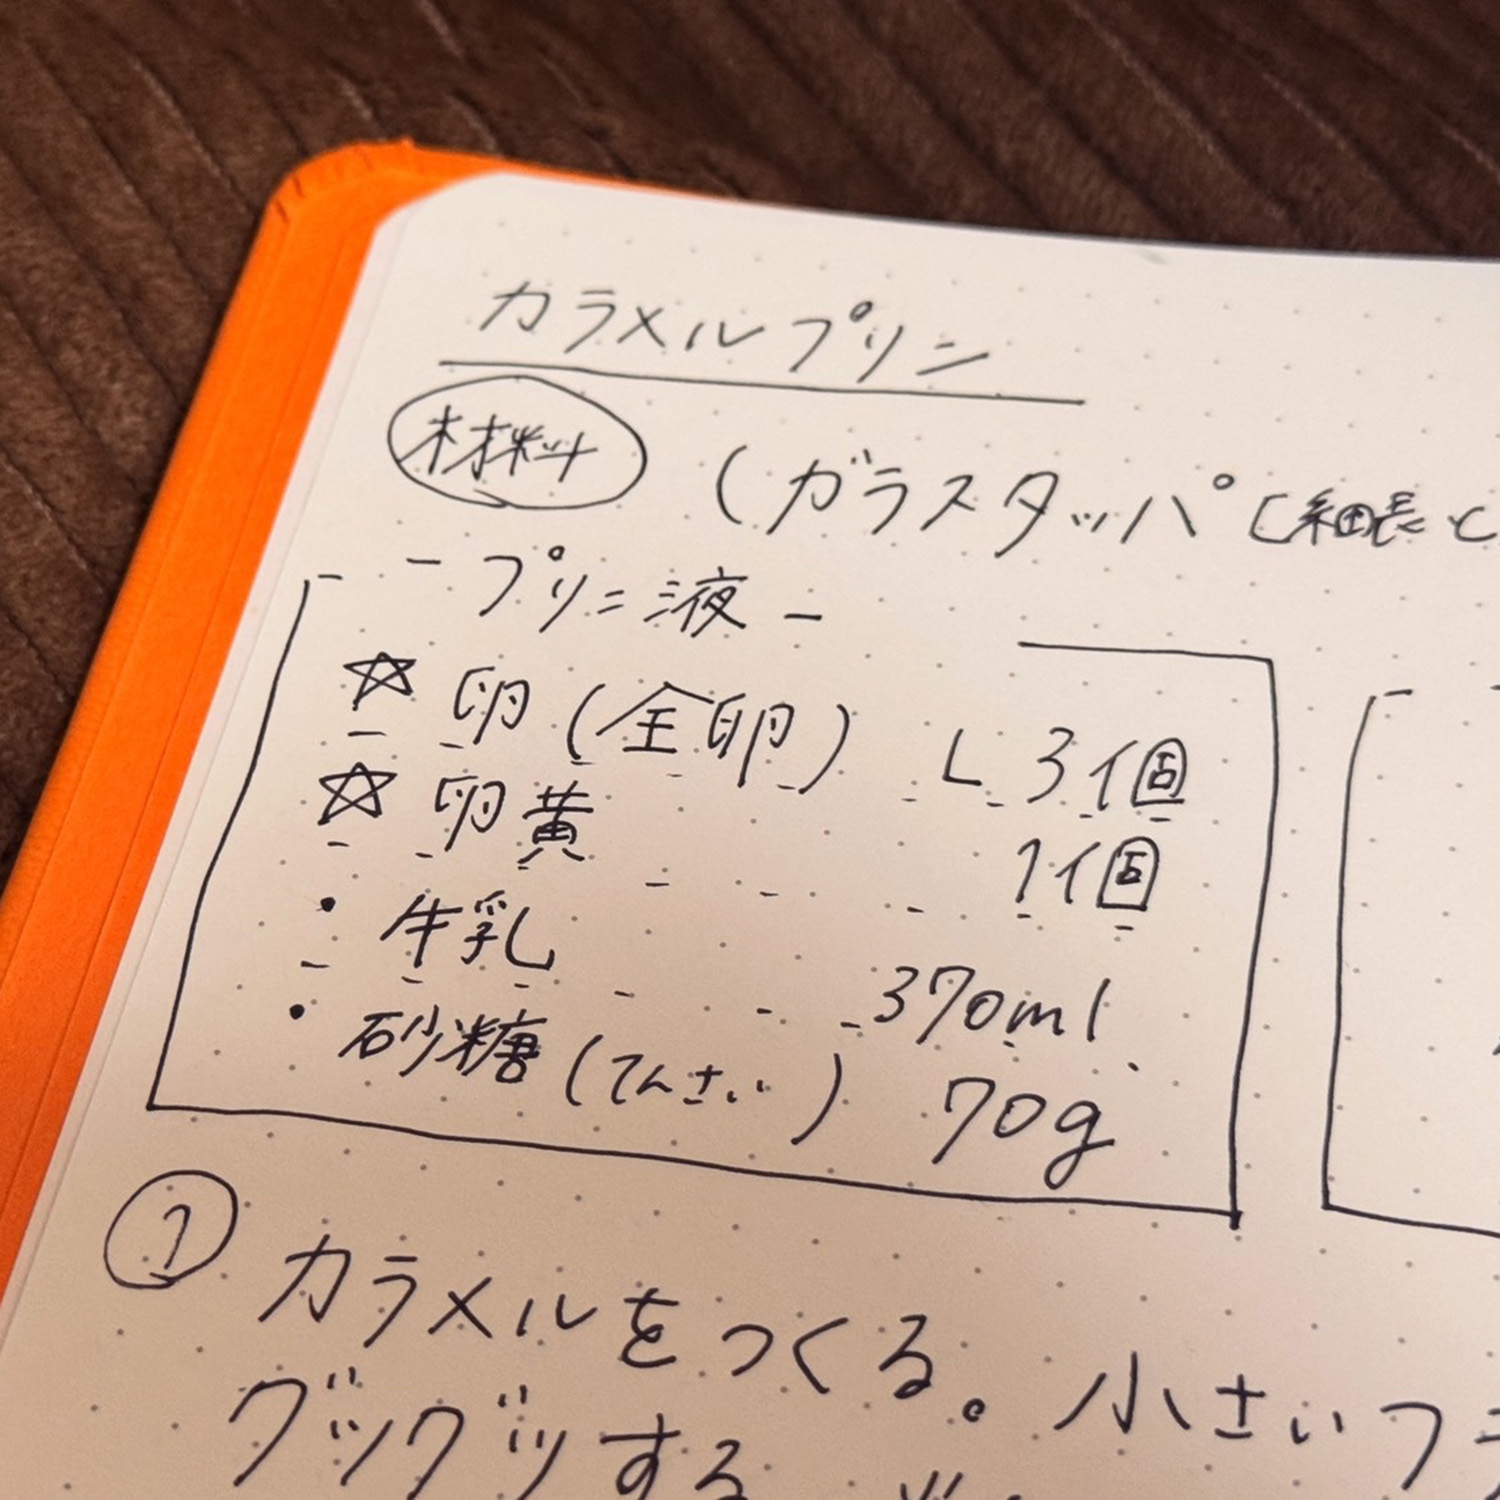 カラメルプリン
材料 (ガラスタッパ(細長く
- プリン液 -
☆ 卵(全卵) L 3個
☆ 卵黄 1個
・ 牛乳 370ml
・ 砂糖(てんさい) 70g
① カラメルをつくる。小さいフラ
グツグツする